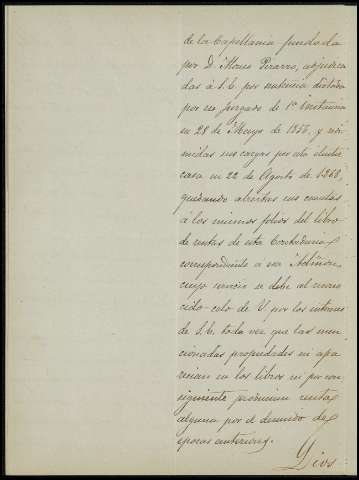 de la Capellania fundada
por D. Alonso Pizarro, adjudica
das á S.E. por sentencia dictada
por un Juzgado de 1ª Instancia
en 28 de Mayo de 1856, y redi
midas sus cargas por esta ilustre
casa en 22 de Agosto de 1868,
quedando abiertas sus cuentas
á los mismos folios del libro
de rentas de esta Contaduria
correspondiente a esa
cuyo servicio se debe al recono
cido celo de V. por los intereses
de S.E. toda vez que las men
cionadas propiedades ni apa
recian en los libros ni por con
siguiente producian renta
alguna por el dominio de
epocas anteriores.
Dios